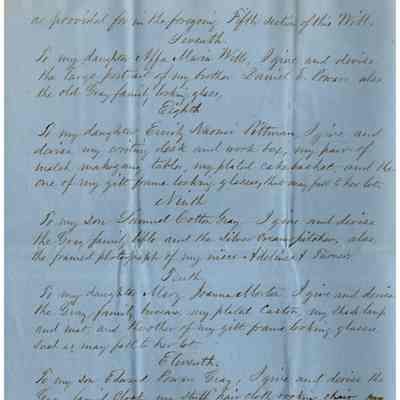 as provided for in the foregoing Fifth section of this Will.
Seventh.
To my daughter Affa Maria Will, I give and devise
the large portrait of my brother Daniel E. Powars also
the old Gray family looking glass,
Eighth
To my daughter Emily Naomi Pittman, I give and
devise my writing desk and work box, my pair of
match mahogany tables, my plated cake basket, and the
one of my gilt frame looking glasses, that may fall to her lot.
Ninth
To my son Samuel Cotton Gray I give and devise
the Gray family and the silver Cream pitcher, also
the framed photograph of my niece Adeline A Turner.
Tenth
To my daughter Mary Joanna Morton I give and devise
the Gray family bureau, my plated Castor, my shade lamp
and mat, and the other of my gilt frame looking glasses
such as may fall to her lot
Eleventh.
To my son Edward Powars Gray, I give and devise the
Gray family Clock, my stuff hair cloth rocking chair